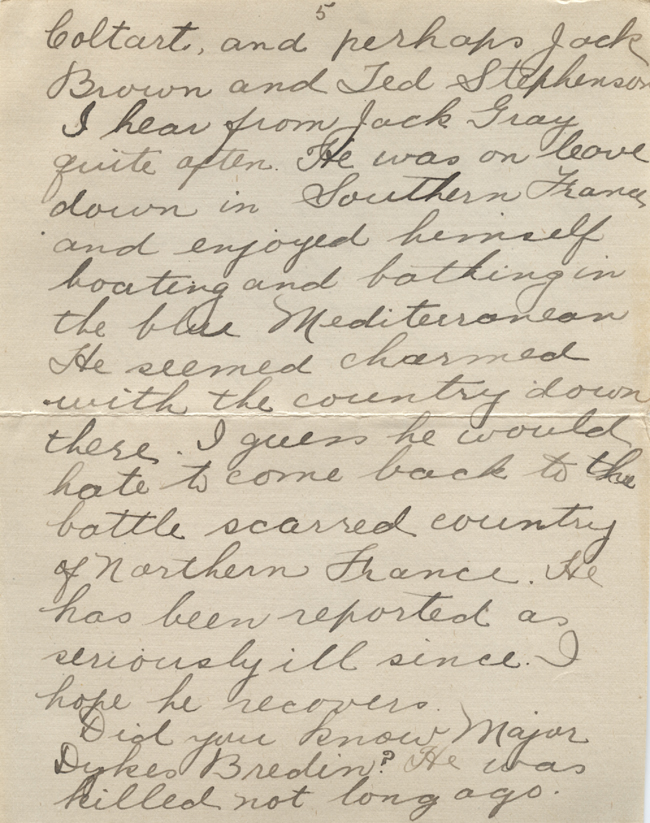 5
Coltart, and perhaps Jack
Brown and Ted Stephenson
I hear from Jack Gray
quite often. He was on leave
down in Southern France
and enjoyed himself
boating and bathing in
the blue Mediterranean
He seemed charmed
with the country down
there. I guess he would
hate to come back to the
battle scarred country
of Northern France. He
has been reported as
seriously ill since. I
hope he recovers.
Did you know Major
Dykes Bredin? He was
killed not long ago.